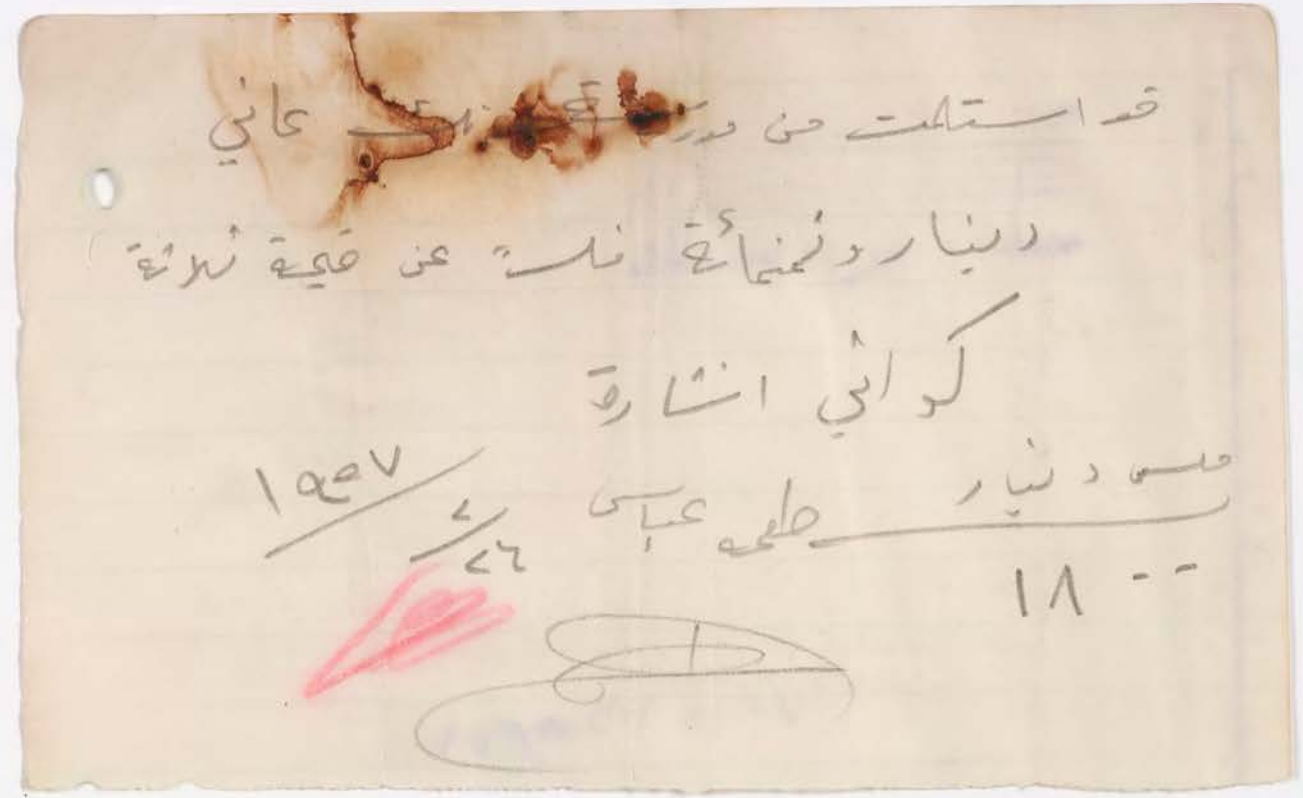 قد استلمت من مدرسة عاني
دينار وثمنمأئة فلساً عن قيمة ثلاثة
كواني انشارة
فلس دينار
عباس
١٨ - -
٢٦/٢/١٩٥٧